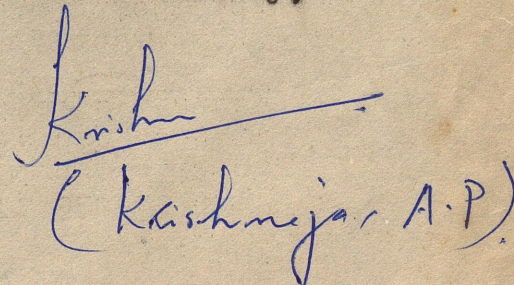 Krishn
(Krishneja, A.P)